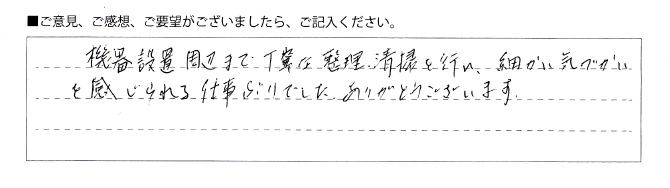 ■ご意見、ご感想、ご要望がございましたら、ご記入ください。
機器設置周辺まで丁寧な整理清掃を行い、細かい気づかい
を感じられる仕事ぶりでした。ありがとうございます。